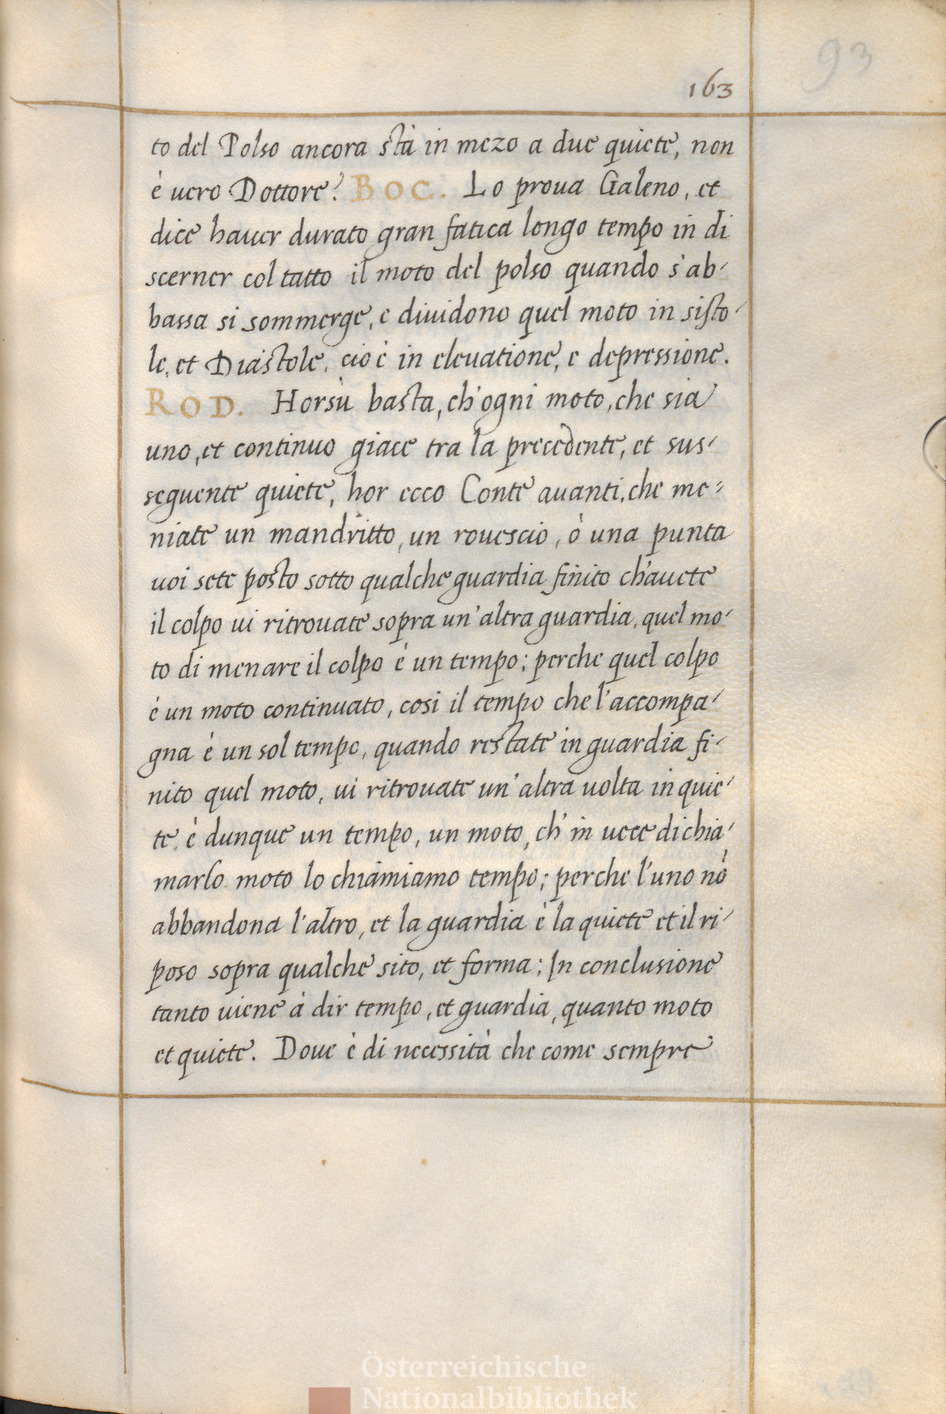 93
163
to del Polso ancora stà in mezo a due quiete, non
è uero Dottore? BOC. Lo proua Galeno, et
dice hauer durato gran fatica longo tempo in di
scerner col tatto il moto del polso quando s'ab-
bassa si sommerge, e diuidono quel moto in sisto-
le, et Diastole, cio è in eleuatione, e depressione.
ROD. Horsù basta, ch'ogni moto, che sia
uno, et continuo giace tra la precedente, et sus-
seguente quiete, hor ecco Conte auanti, che me-
niate un mandritto, un rouescio, ò una punta
uoi sete posto sotto qualche guardia finito ch'auete
il colpo ui ritrouate sopra un'altra guardia, quel mo-
to di menare il colpo è un tempo; perche quel colpo
è un moto continuato, cosi il tempo che l'accompa-
gna è un sol tempo, quando restate in guardia fi-
nito quel moto, ui ritrouate un'altra uolta in quie-
te, è dunque un tempo, un moto, ch'in uece di chia-
marlo moto lo chiamiamo tempo; perche l'uno nõ
abbandona l'altro, et la guardia è la quiete et il ri-
poso sopra qualche sito, et forma; In conclusione
tanto uiene à dir tempo, et guardia, quanto moto
et quiete. Doue è di necessità che come sempre
Österreichische
Nationalbibliothek